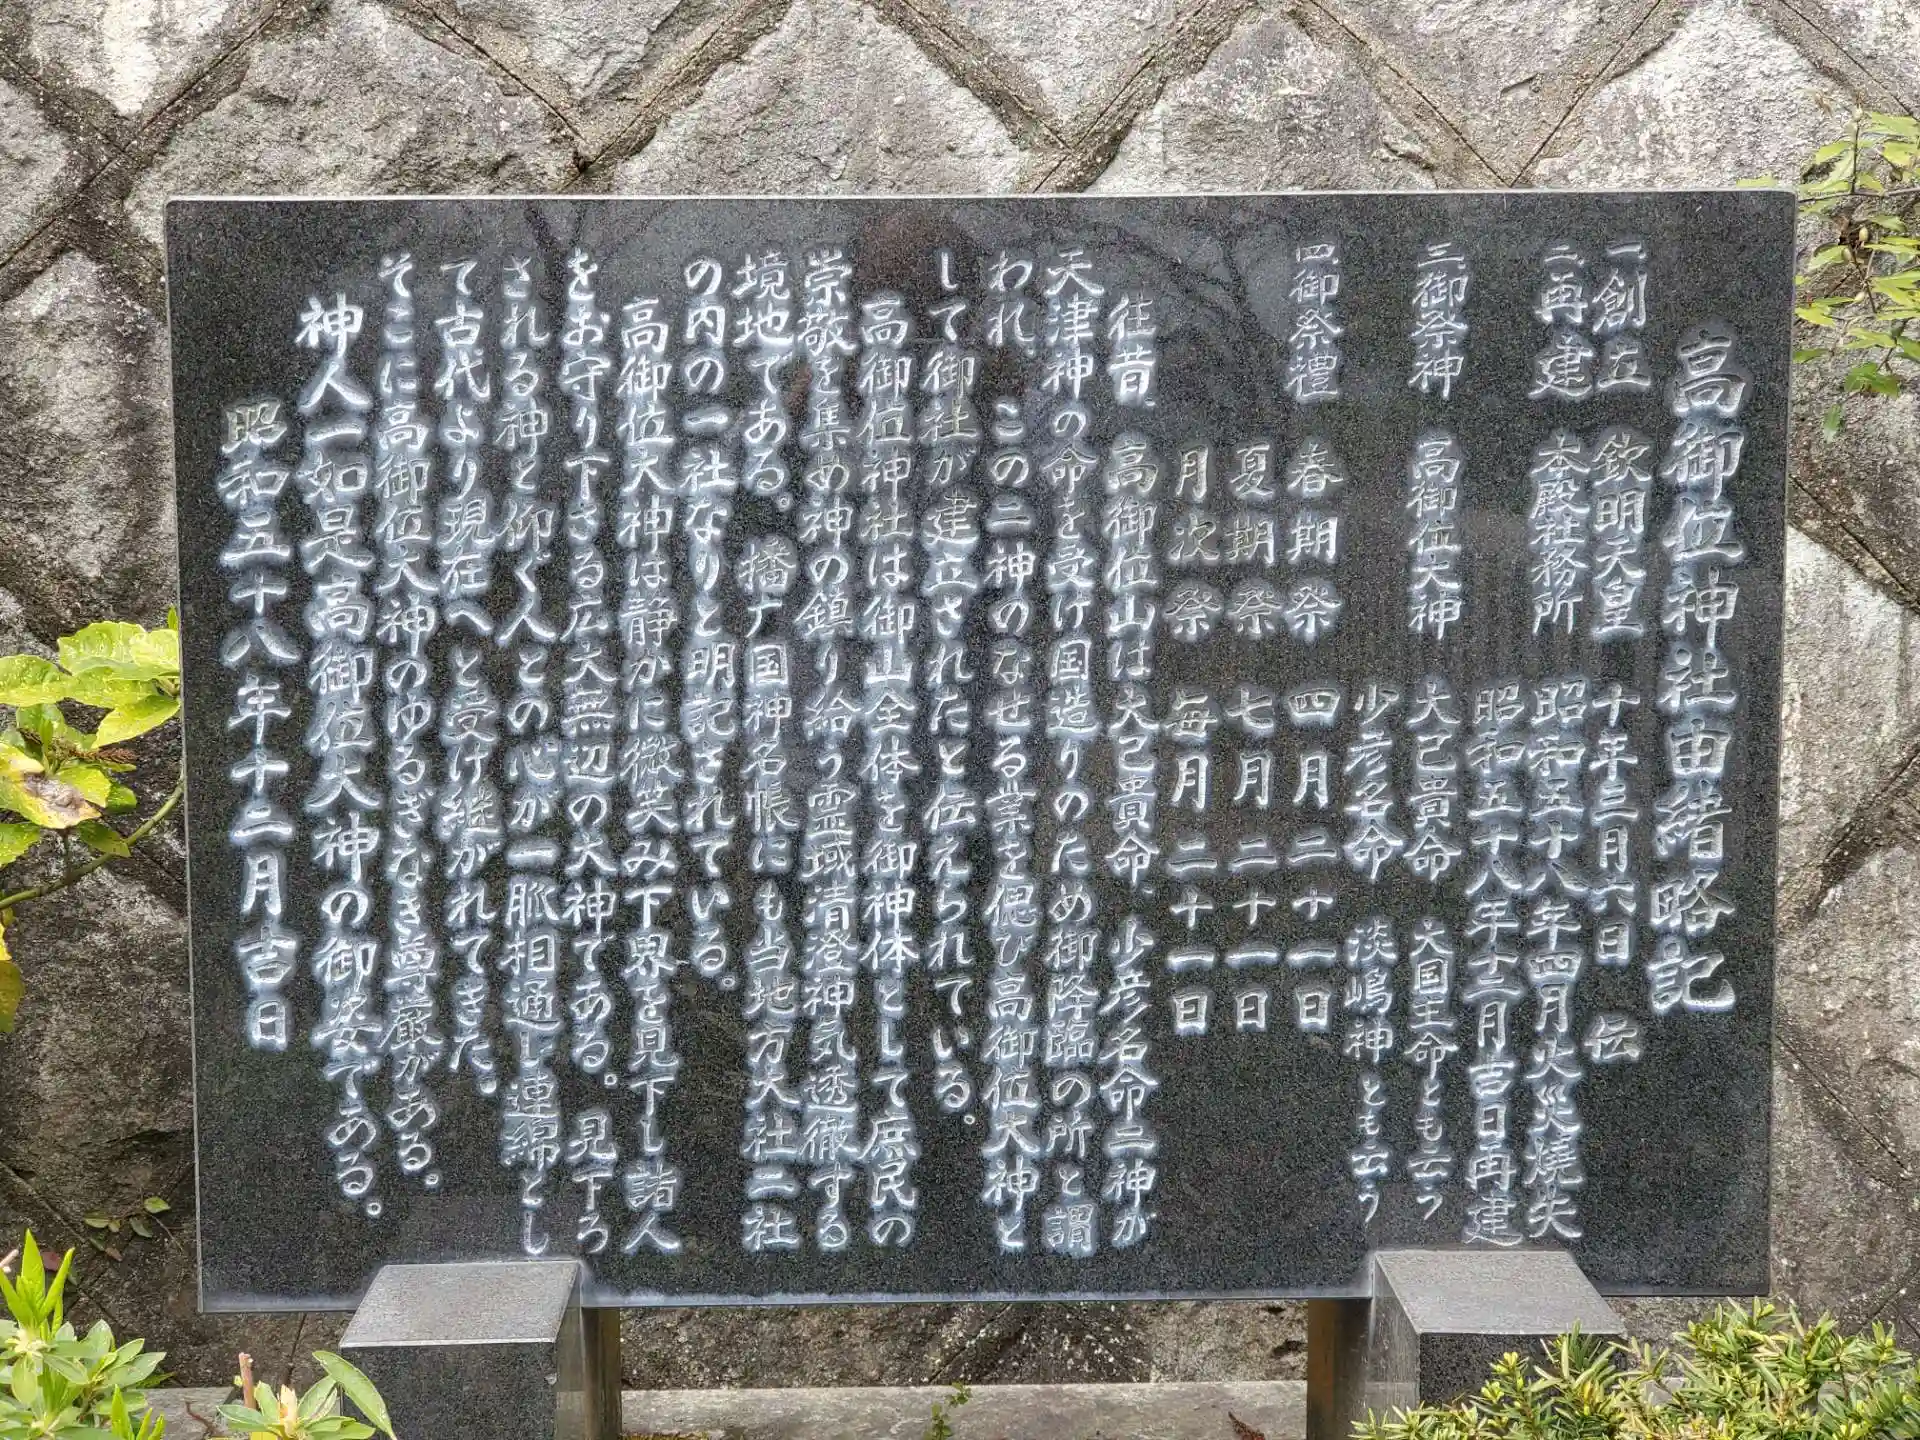 高御位神社由緒略記
一、創立 欽明天皇 十年三月六日 伝
二、再建 本殿社務所 昭和五十八年四月火災燒失
昭和五十八年十二月吉日再建
三、御祭神 高御位大神 大己貴命 大国主命とも云う
少彦名命 淡嶋神とも云う
四、御祭禮 春期祭 四月二十一日
夏期祭 七月二十一日
月次祭 毎月二十一日
往昔、高御位山は大己貴命、少彦名命二神が
天津神の命を受け国造りのため御降臨の所と謂
われ、この二神のなせる業を偲び高御位大神と
して御社が建立されたと伝えられている。
高御位神社は御山全体を御神体として庶民の
崇敬を集め神の鎮り給う霊域清澄神気透徹する
境地である。播广国神名帳にも当地方大社二社
の内の一社なりと明記されている。
高御位大神は静かに微笑み下界を見下し諸人
をお守り下さる広大無辺の大神である。見下ろ
される神と仰ぐ人との心が一脈相通し連綿とし
て古代より現在へと受け継がれてきた。
そこに高御位大神のゆるぎなき尊厳がある。
神人一如是高御位大神の御姿である。
昭和五十八年十二月吉日